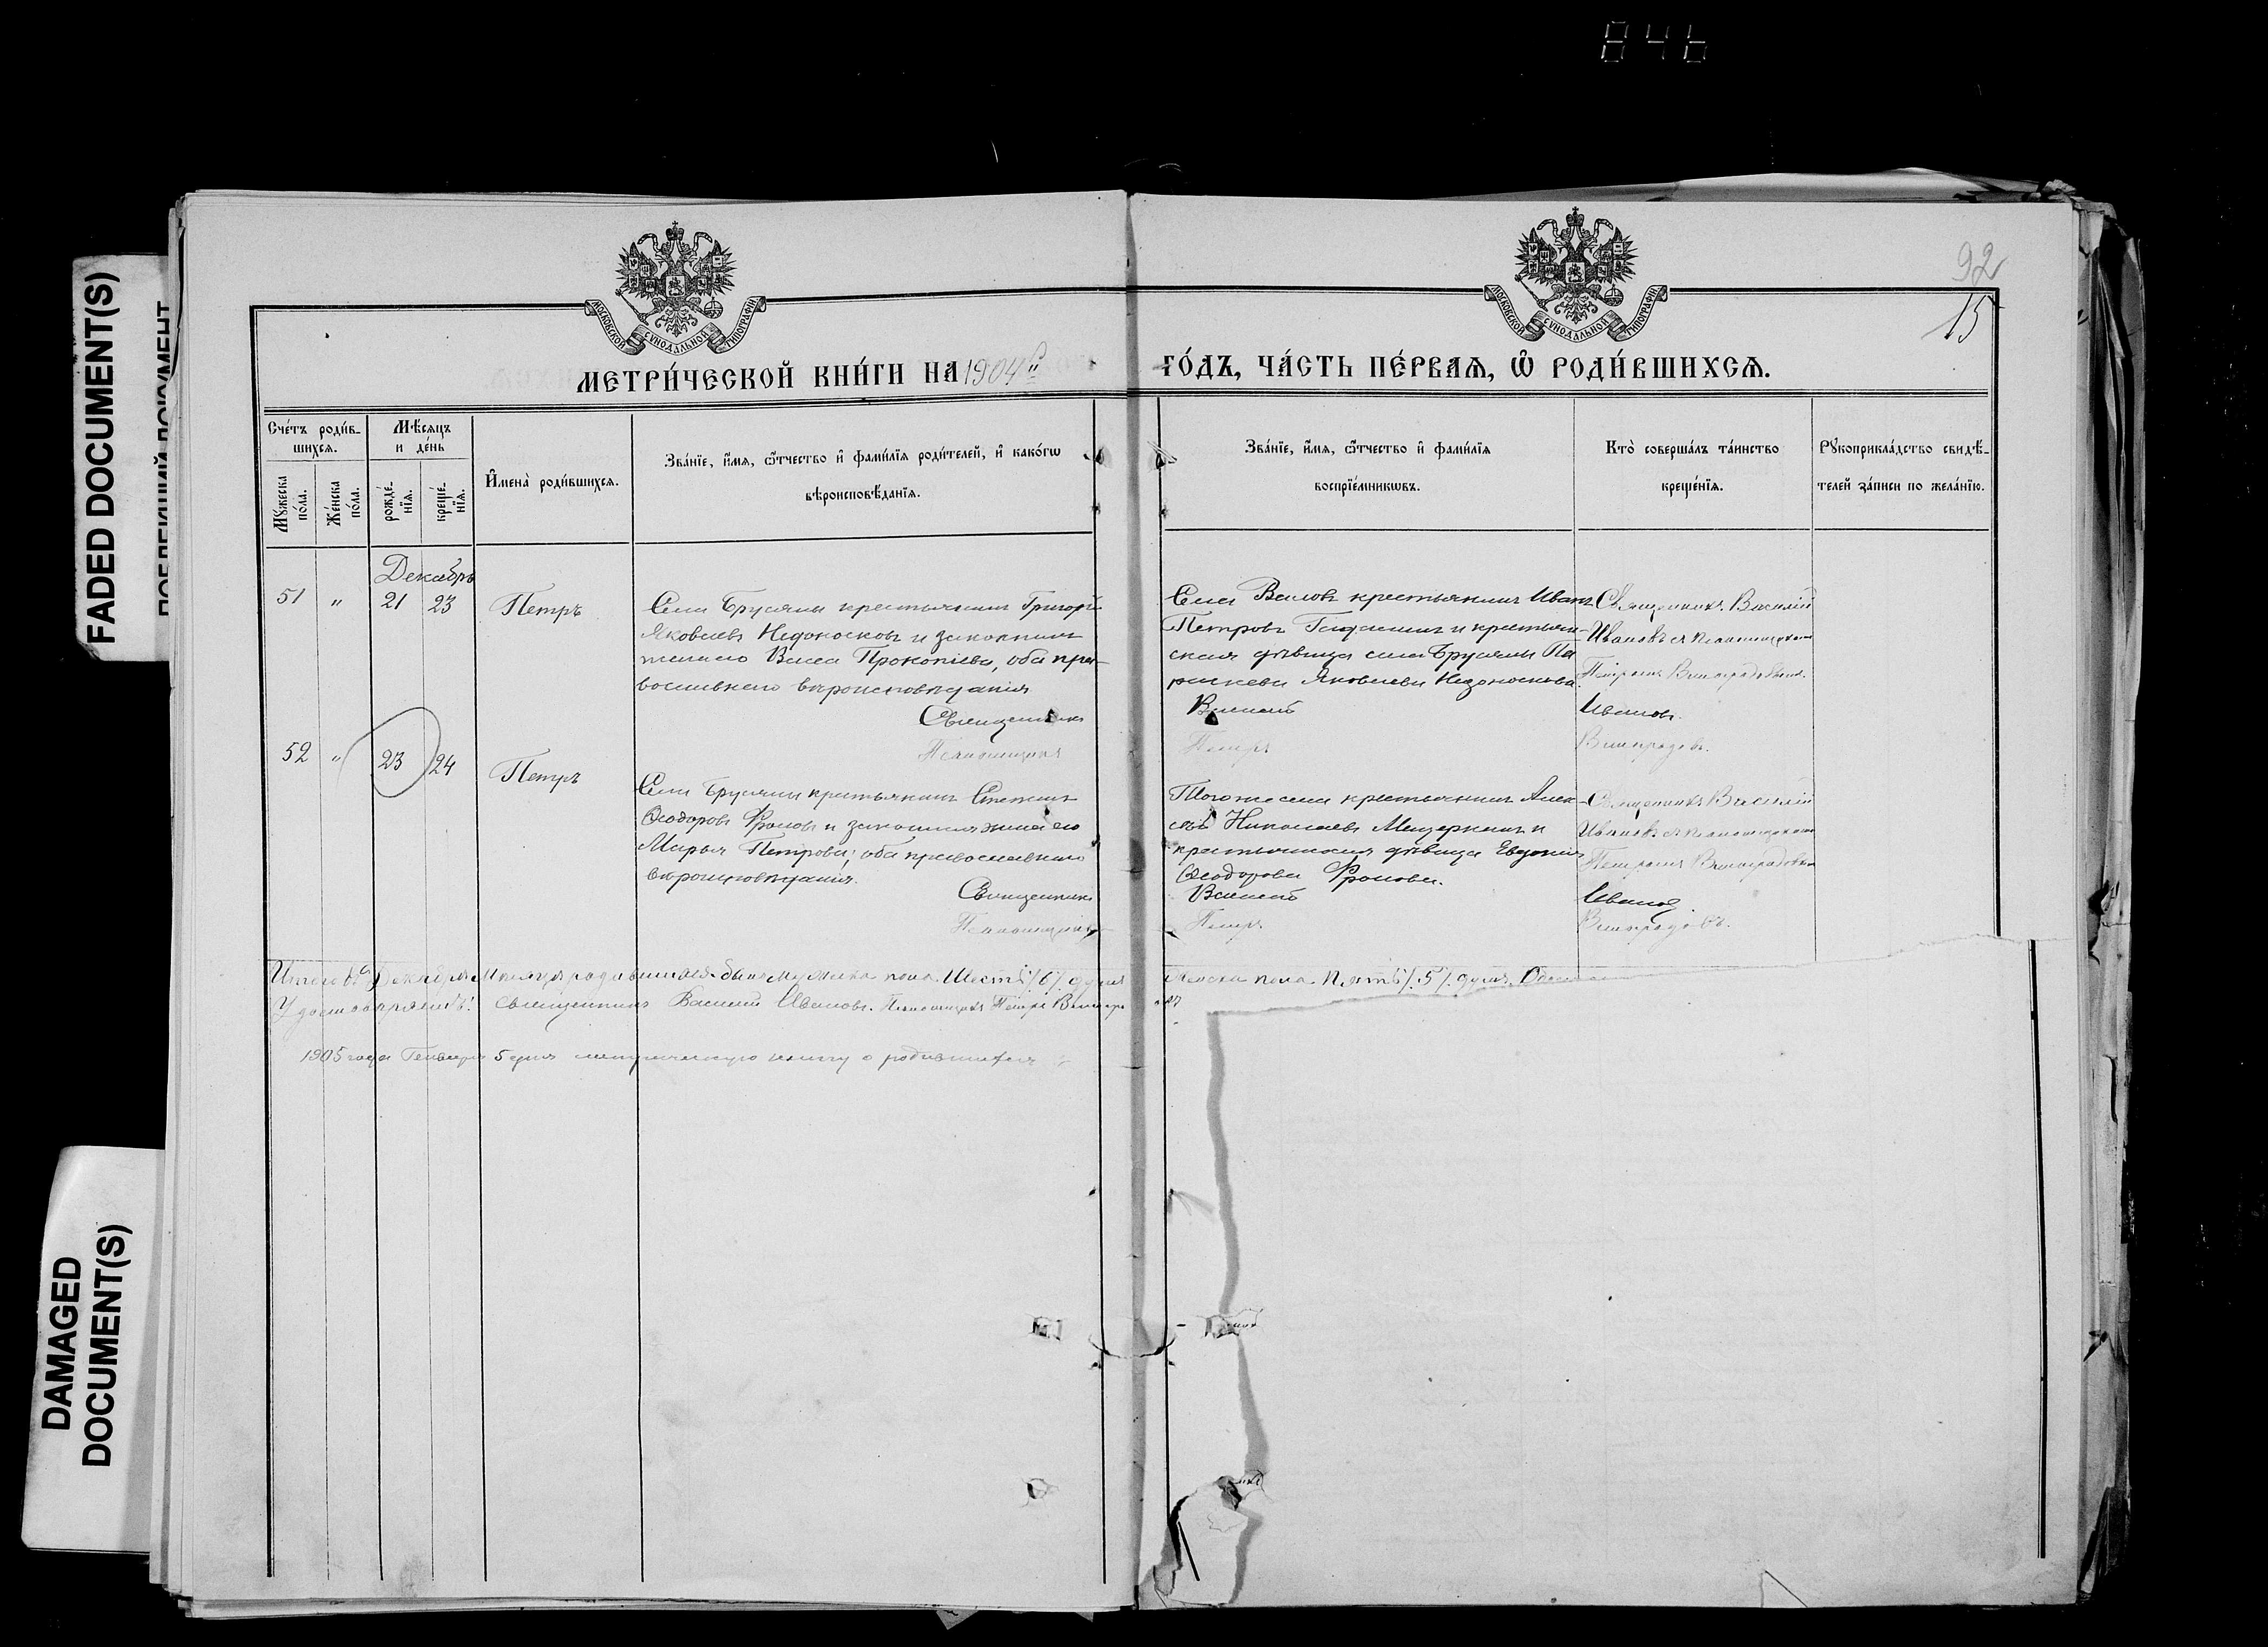 846
FADED DOCUMENT(S)
DAMAGED
DOCUMENT(S)
92
15
МОСКОВСКОЙ СѴНОДАЛЬНОЙ ТИПОГРАФІИ
МОСКОВСКОЙ СѴНОДАЛЬНОЙ ТИПОГРАФІИ
МЕТРИ́ЧЕСКОЙ КНИ́ГИ НА 1904й
ГО́ДЪ, ЧА́СТЬ ПЕ́РВАѦ, Ѡ҆ РОДИ́ВШИХСѦ.
Сче́тъ роди́в-
шихсѧ.
Мꙋ́жеска по́ла.
Же́нска по́ла.
Мѣ́сѧцъ
и де́нь
рожде́-нїѧ.
креще́-нїѧ.
И҆мена̀ роди́вшихсѧ.
Зва́нїе, и҆́мѧ, ѻ҆́тчество и҆ фами́лїѧ роди́телей, и҆ како́гѡ
вѣроисповѣ́данїѧ.
Зва́нїе, и҆́мѧ, ѻ҆́тчество и҆ фами́лїѧ
воспрїе́мникѡвъ.
Кто̀ соверша́лъ та́инство
креще́нїѧ.
Рꙋкоприкла́дство свидѣ́-
телей за́писи по жела́нїю.
Декабрь
51 " 21 23 Петръ
Села Брусяны крестьянинъ Григорій
Яковлевъ Недоносковъ и законная
жена его Васса Прокопіева, оба пра-
вославнаго вѣроисповѣданія
Священникъ
Псаломщикъ
Села Валовъ крестьянинъ Иванъ
Петровъ и крестьян-
ская дѣвица села Брусяны Па
раскева Яковлева Недоноскова.
Василій
Петръ
Священникъ Василій
Ивановъ съ псаломщикомъ
Петромъ Виноградовымъ.
Ивановъ.
Виноградовъ.
52 " 23 24 Петръ
Села Брусяны крестьянинъ Степанъ
Ѳеодоровъ Фроловъ и законная жена его
Марья Петрова; оба православнаго
вѣроисповѣданія.
Священникъ
Псаломщикъ
Того же села крестьянинъ Алек-
сѣй Николаевъ Мещеркинъ и
крестьянская дѣвица Евдокія
Ѳеодорова Фролова.
Василій
Петръ
Священникъ Василій
Ивановъ съ псаломщикомъ
Петромъ Виноградовымъ
Ивановъ
Виноградовъ.
Итого въ Декабрѣ мѣсяцѣ родившихся было мужеска пола Шесть /6/ душъ
Женска пола Пять /5/ душъ. Обоего
Удостовѣряемъ: Священникъ Василій Ивановъ. Псаломщикъ Петръ Виногра
1905 года Генваря 5 дня метрическую книгу о родившихся